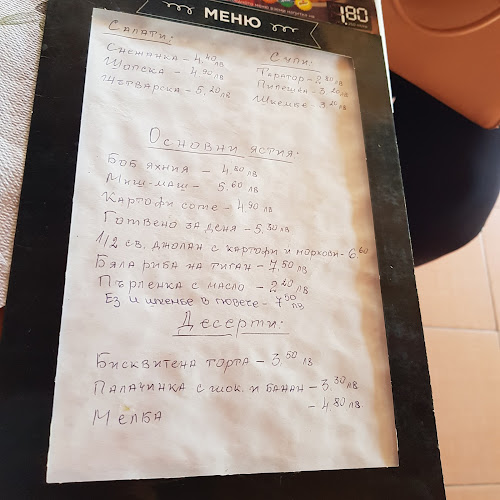 МЕНЮ
1,80
Салати:
Снежанка - 4,40 лв
Шопска - 4,90 лв
Жетварска - 5,20 лв
Супи:
Таратор - 2,80 лв
Пилешка - 3,20 лв
Шкембе - 3,20 лв
Основни ястия.
Боб яхния - 4,80 лв
Миш-маш - 5,60 лв
Картофи соте - 4,90 лв
Готвено за деня - 5,30 лв
1/2 св. джолан с картофи и моркоси - 6,60
Бяла риба на тиган - 7,50 лв
Пърленка с масло - 2,20 лв
Ез и шкембе в гювече - 7,50 лв
Десерти:
Бисквитена торта - 3,50 лв
Палачинка с шок. и банан - 3,30 лв
Мелба - 4,80 лв